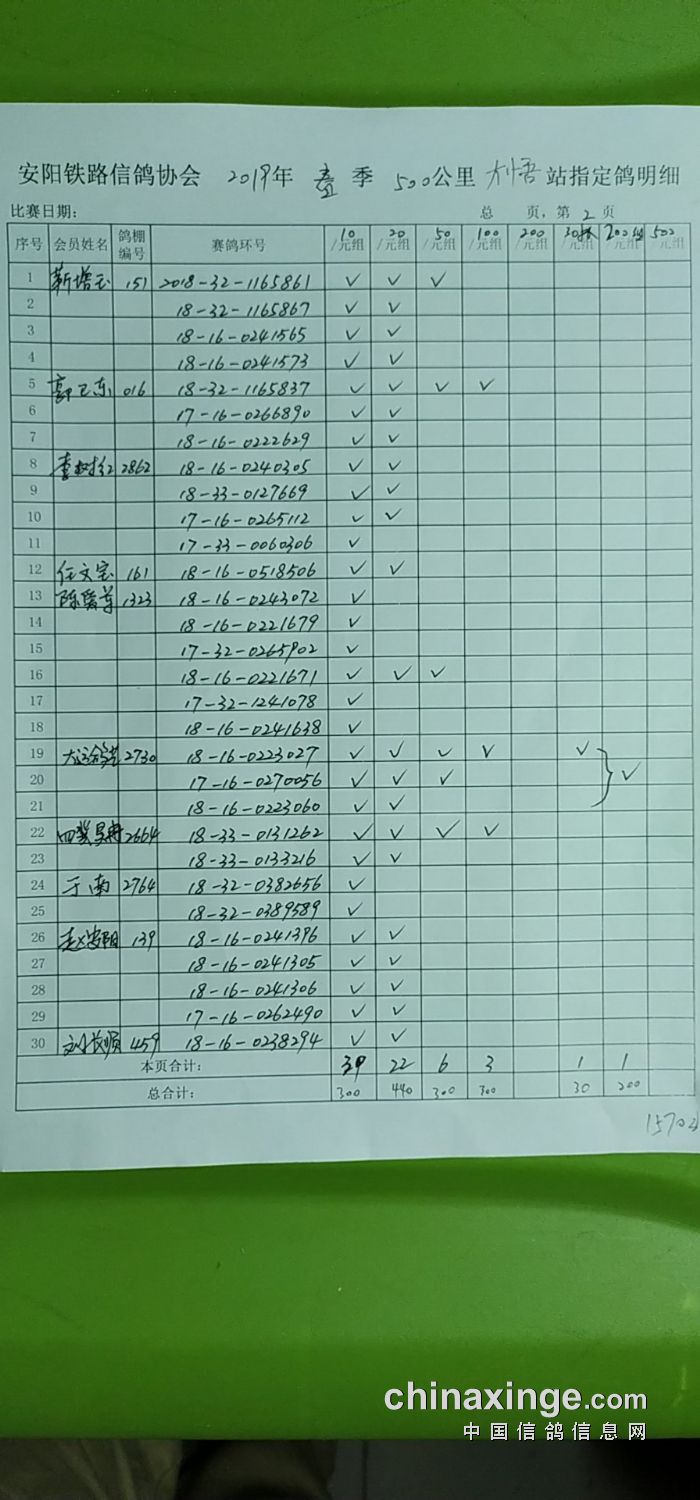 安阳铁路信鸽协会 2019年 季 500公里 站指定鸽明细
比赛日期： 总 页，第 2 页
序号 会员姓名 鸽棚编号 赛鸽环号 10/元组 20/元组 50/元组 100/元组 200/元组 30/元组 200/元组 500/元组
1 151 2018-32-1165861 ✓ ✓ ✓
2 18-32-1165867 ✓ ✓
3 18-16-0241565 ✓ ✓
4 18-16-0241573 ✓ ✓
5 016 18-32-1165837 ✓ ✓ ✓ ✓
6 17-16-0266890 ✓ ✓
7 18-16-0222629 ✓ ✓
8 2862 18-16-0240305 ✓ ✓
9 18-33-0127669 ✓ ✓
10 17-16-0265112 ✓ ✓
11 17-33-0060306 ✓
12 任文宝 161 18-16-0518506 ✓ ✓
13 1323 18-16-0243072 ✓
14 18-16-0221679 ✓
15 17-32-0265902 ✓
16 18-16-0221671 ✓ ✓ ✓
17 17-32-1241078 ✓
18 18-16-0241638 ✓
19 2730 18-16-0223027 ✓ ✓ ✓ ✓ ✓
20 17-16-0270056 ✓ ✓ ✓ ✓
21 18-16-0223060 ✓ ✓
22 2664 18-33-0131262 ✓ ✓ ✓ ✓
23 18-33-0133216 ✓ ✓
24 于南 2764 18-32-0382656 ✓
25 18-32-0389589 ✓
26 赵安阳 139 18-16-0241396 ✓ ✓
27 18-16-0241305 ✓ ✓
28 18-16-0241306 ✓ ✓
29 17-16-0262490 ✓ ✓
30 刘长顺 459 18-16-0238294 ✓ ✓
本页合计： 22 6 3 1 1
总合计： 300 440 300 300 30 200
1570
chinaxinge.com
中国信鸽信息网